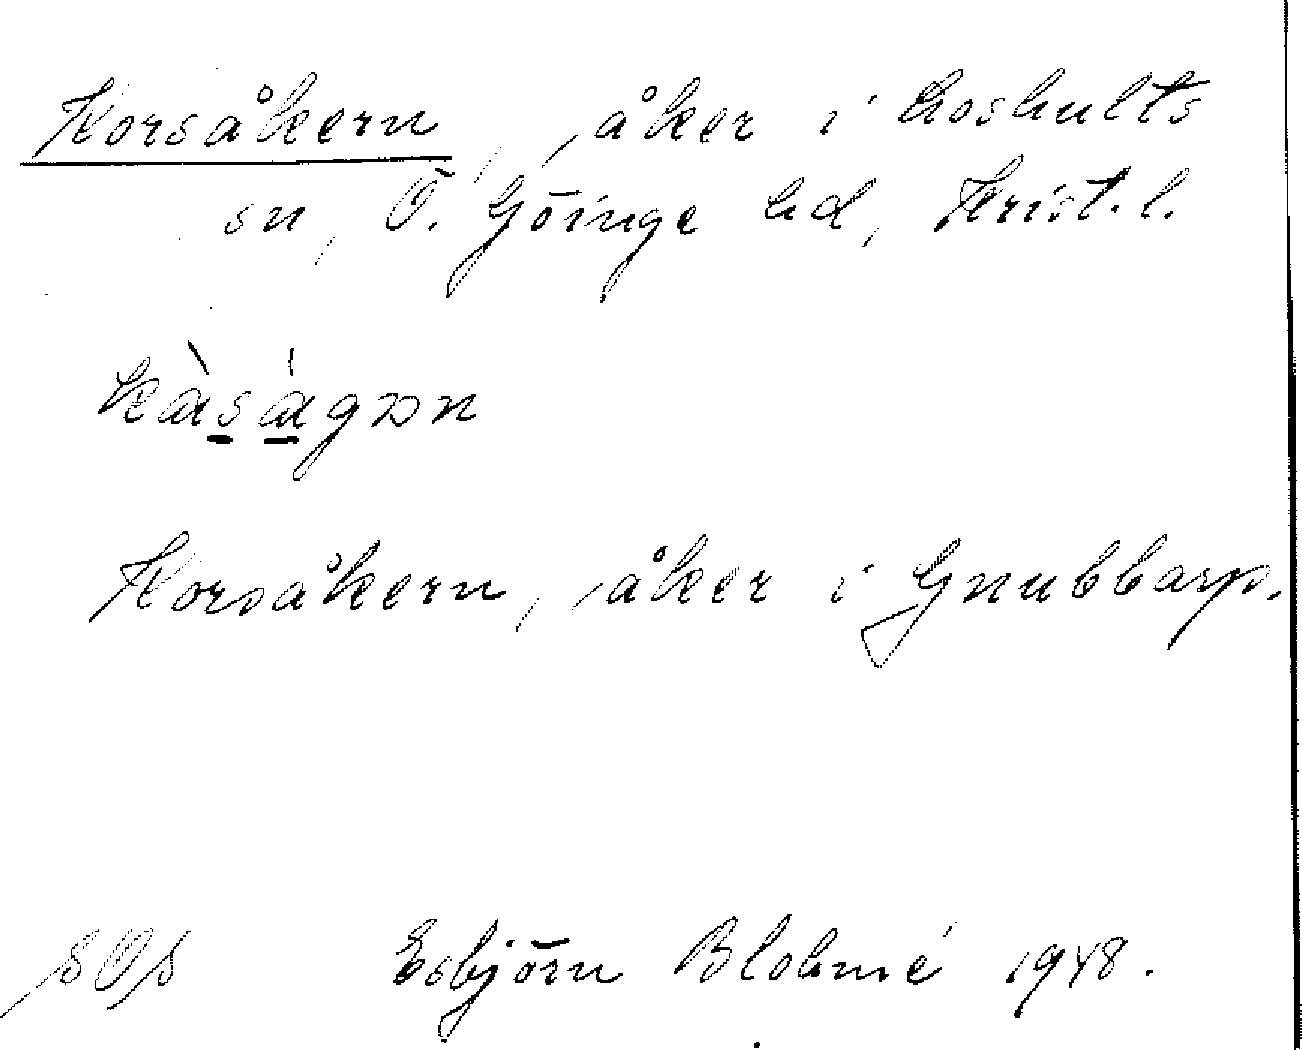 Korsåkern, åker i Loshults
sn, Ö. Göinge hd, Krist. l.
Korsåkern, åker i Gnubbarp.
Esbjörn Blohmé 1948.